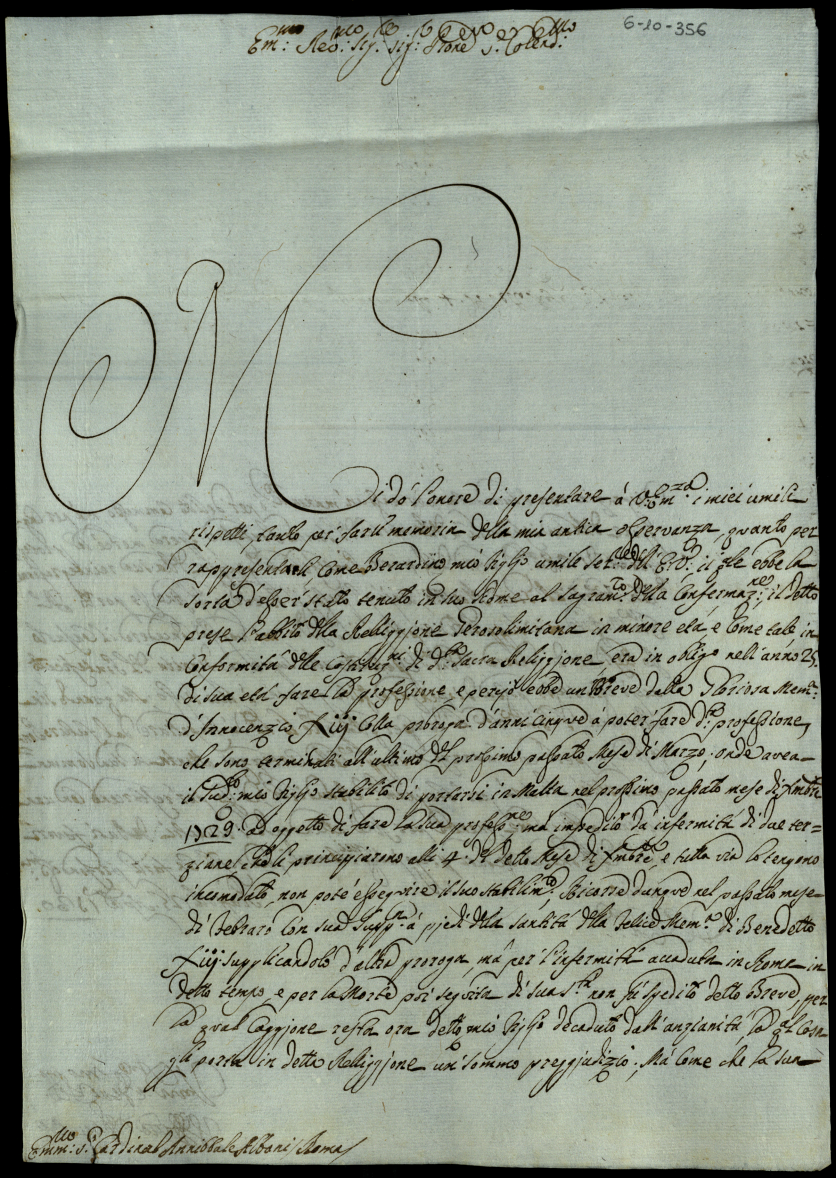 6-10-356
Em:mo Rev:mo Sig:re Sig:r Prone v. Colend:mo
Mi dó l'onore di presentare á V: Em:za i miei umili
rispetti, tanto per farli memoria della mia antica osservanza, quanto per
rappresentarli come Berardino mio figlio umile ser:re dell' E:V: il qle ebbe la
sorta d'esser stato tenuto in suo nome al Sagram:to della Confermaz:ne, il detto
prese l'abbito della Religgione Gerosolimitana in minore etá, e come tale in
conformitá delle Costituz:ni di d:a Sacra Religgione, era in obligo nell'anno 25.
di sua etá fare la professione, e perció ebbe un Breve dalla Gloriosa Mem:a
d'Innocenzio XIIJ colla proroga d'anni cinque á poter fare d:a professione,
che sono terminati all'ultimo del prossimo passato Mese di Marzo; onde avea
il sud:o mio figlio stabilito di portarsi in Malta nel prossimo passato mese di Xmbre
1729. Ad oggetto di fare la sua profess:ne, má impedito da infermitá di due ter=
ziane, le quali principiarono alli 4 del detto Mese di Xmbre, e tutta via lo tengono
incomodato, non poté esseguire il suo stabilim:to, ricorse dunque nel passato mese
di Febraro con sua Supp:a á piedi della Santitá della Felice Mem:a di Benedetto
XIIJ supplicandolo d'altra proroga, má per l'infermitá accaduta in Roma in
detto tempo, e per la Morte poi seguita di sua S:tá non fú spedito detto Breve, per
la qual caggione resta ora detto mio figlio decaduto dall'anzianitá, la qal cosa
gli porta in detta Religgione un sommo preggiudizio; Má come che la sua
Emm:mo S:r Cardinal Annibbale Albani / Roma /